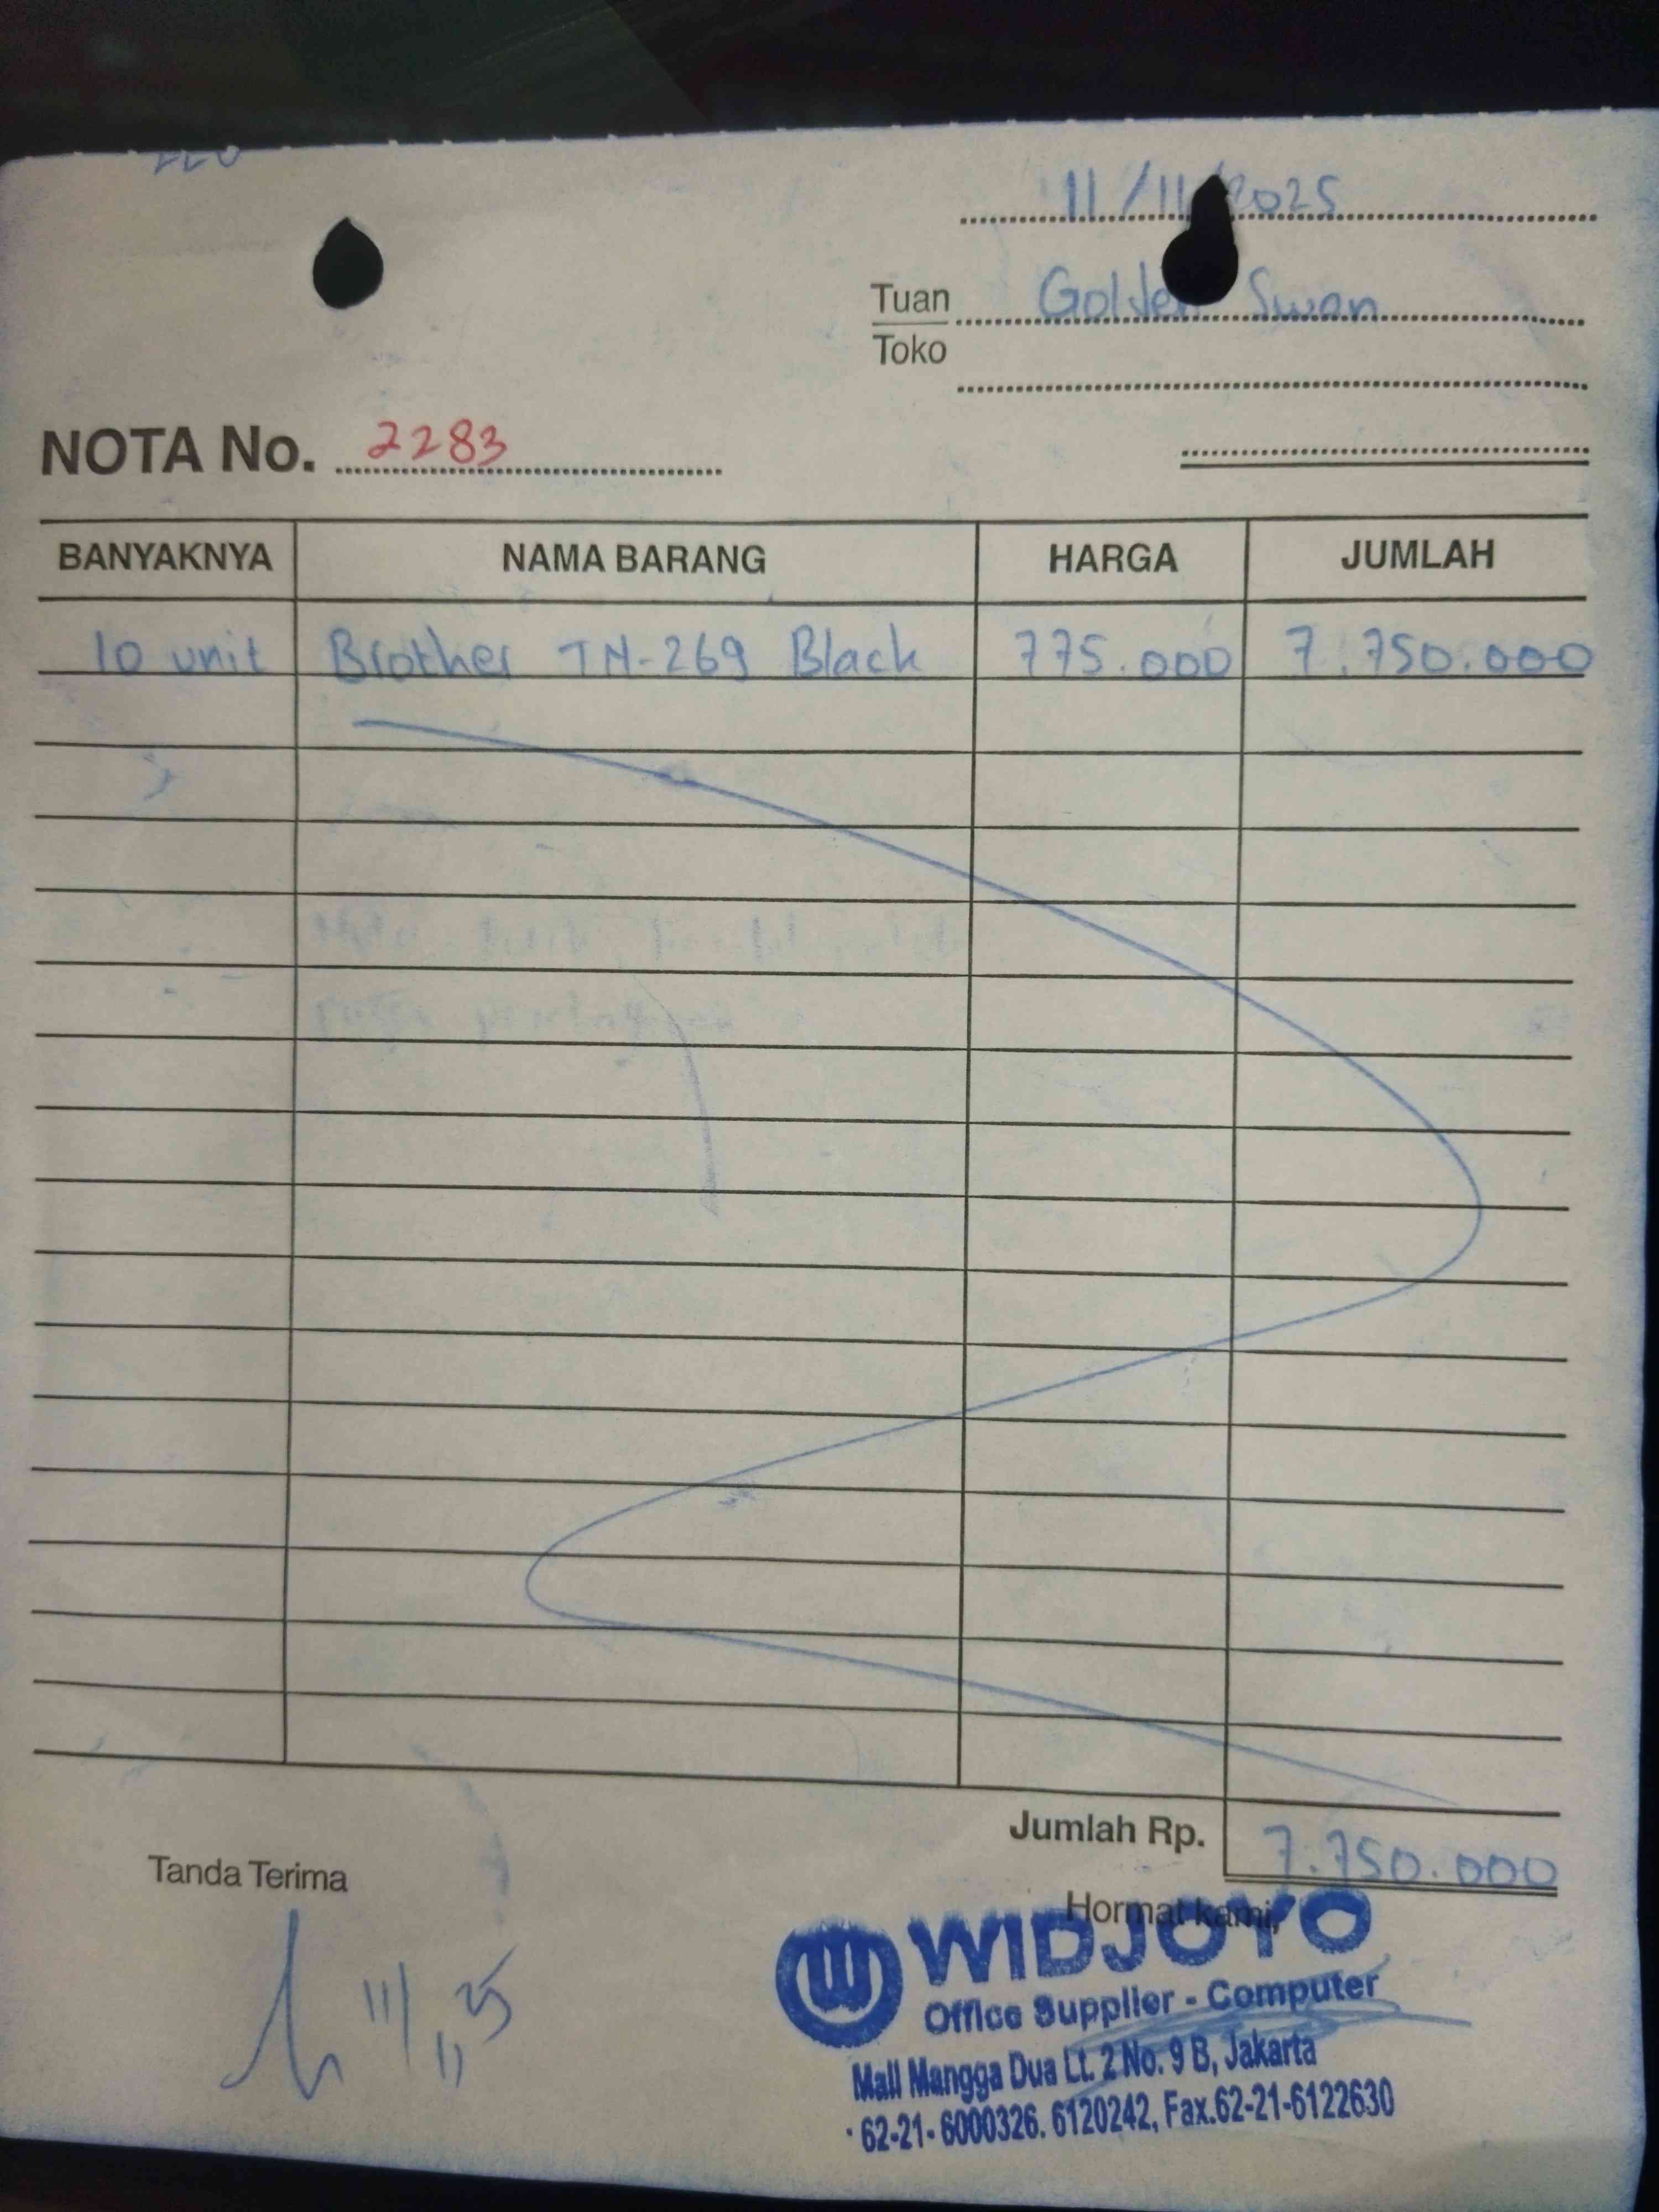 11/11/2025
Tuan Golden Swan
Toko
NOTA No. 2283
BANYAKNYA NAMA BARANG HARGA JUMLAH
10 unit Brother TN-269 Black 775.000 7.750.000
Jumlah Rp. 7.750.000
Tanda Terima
Hormat kami,
11/11 25
WIDJOYO
Office Supplier - Computer
Mall Mangga Dua Lt. 2 No. 9 B, Jakarta
62-21-6000326. 6120242, Fax.62-21-6122630